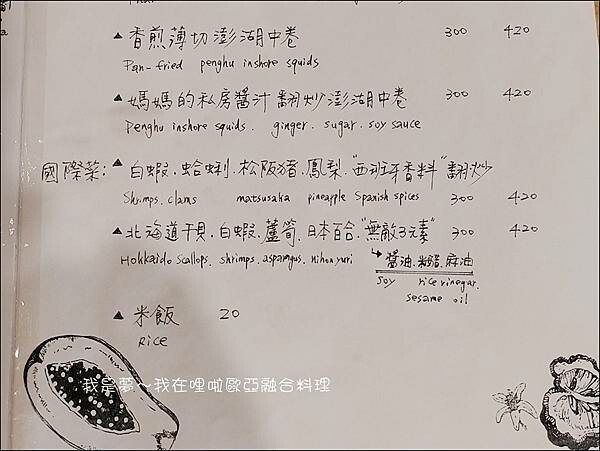 ▲ 香煎薄切澎湖中卷 300 420
Pan-fried penghu inshore squids
▲ 媽媽的私房醬汁翻炒澎湖中卷 300 420
Penghu inshore squids. ginger. sugar. soy sauce
國際菜: ▲ 白蝦.蛤蜊.松阪豬.鳳梨."西班牙香料"翻炒
Shrimps. clams matsusaka pineapple Spanish spices 300 420
▲ 北海道干貝.白蝦.蘆筍.日本百合."無敵3元素" 300 420
Hokkaido scallops. shrimps. asparagus. nihon yuri 醬油.米醋.麻油
soy rice vinegar.
sesame oil
▲ 米飯 20
Rice
我是夢~我在哩啦歐亞融合料理